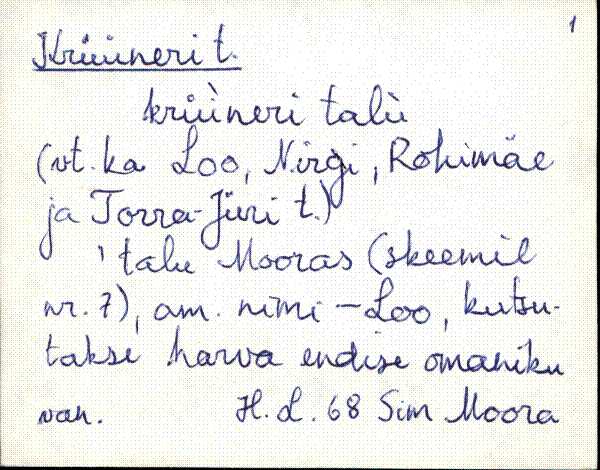 1
Krüüneri t.
krǜüneri talù
(vt. ka Loo, Nirgi, Rohimäe
ja Torra-Jüri t.)
' talu Mooras (skeemil
nr. 7), am. nimi – Loo, kutsu-
takse harva endise omaniku
van. H. L. 68 Sim Moora